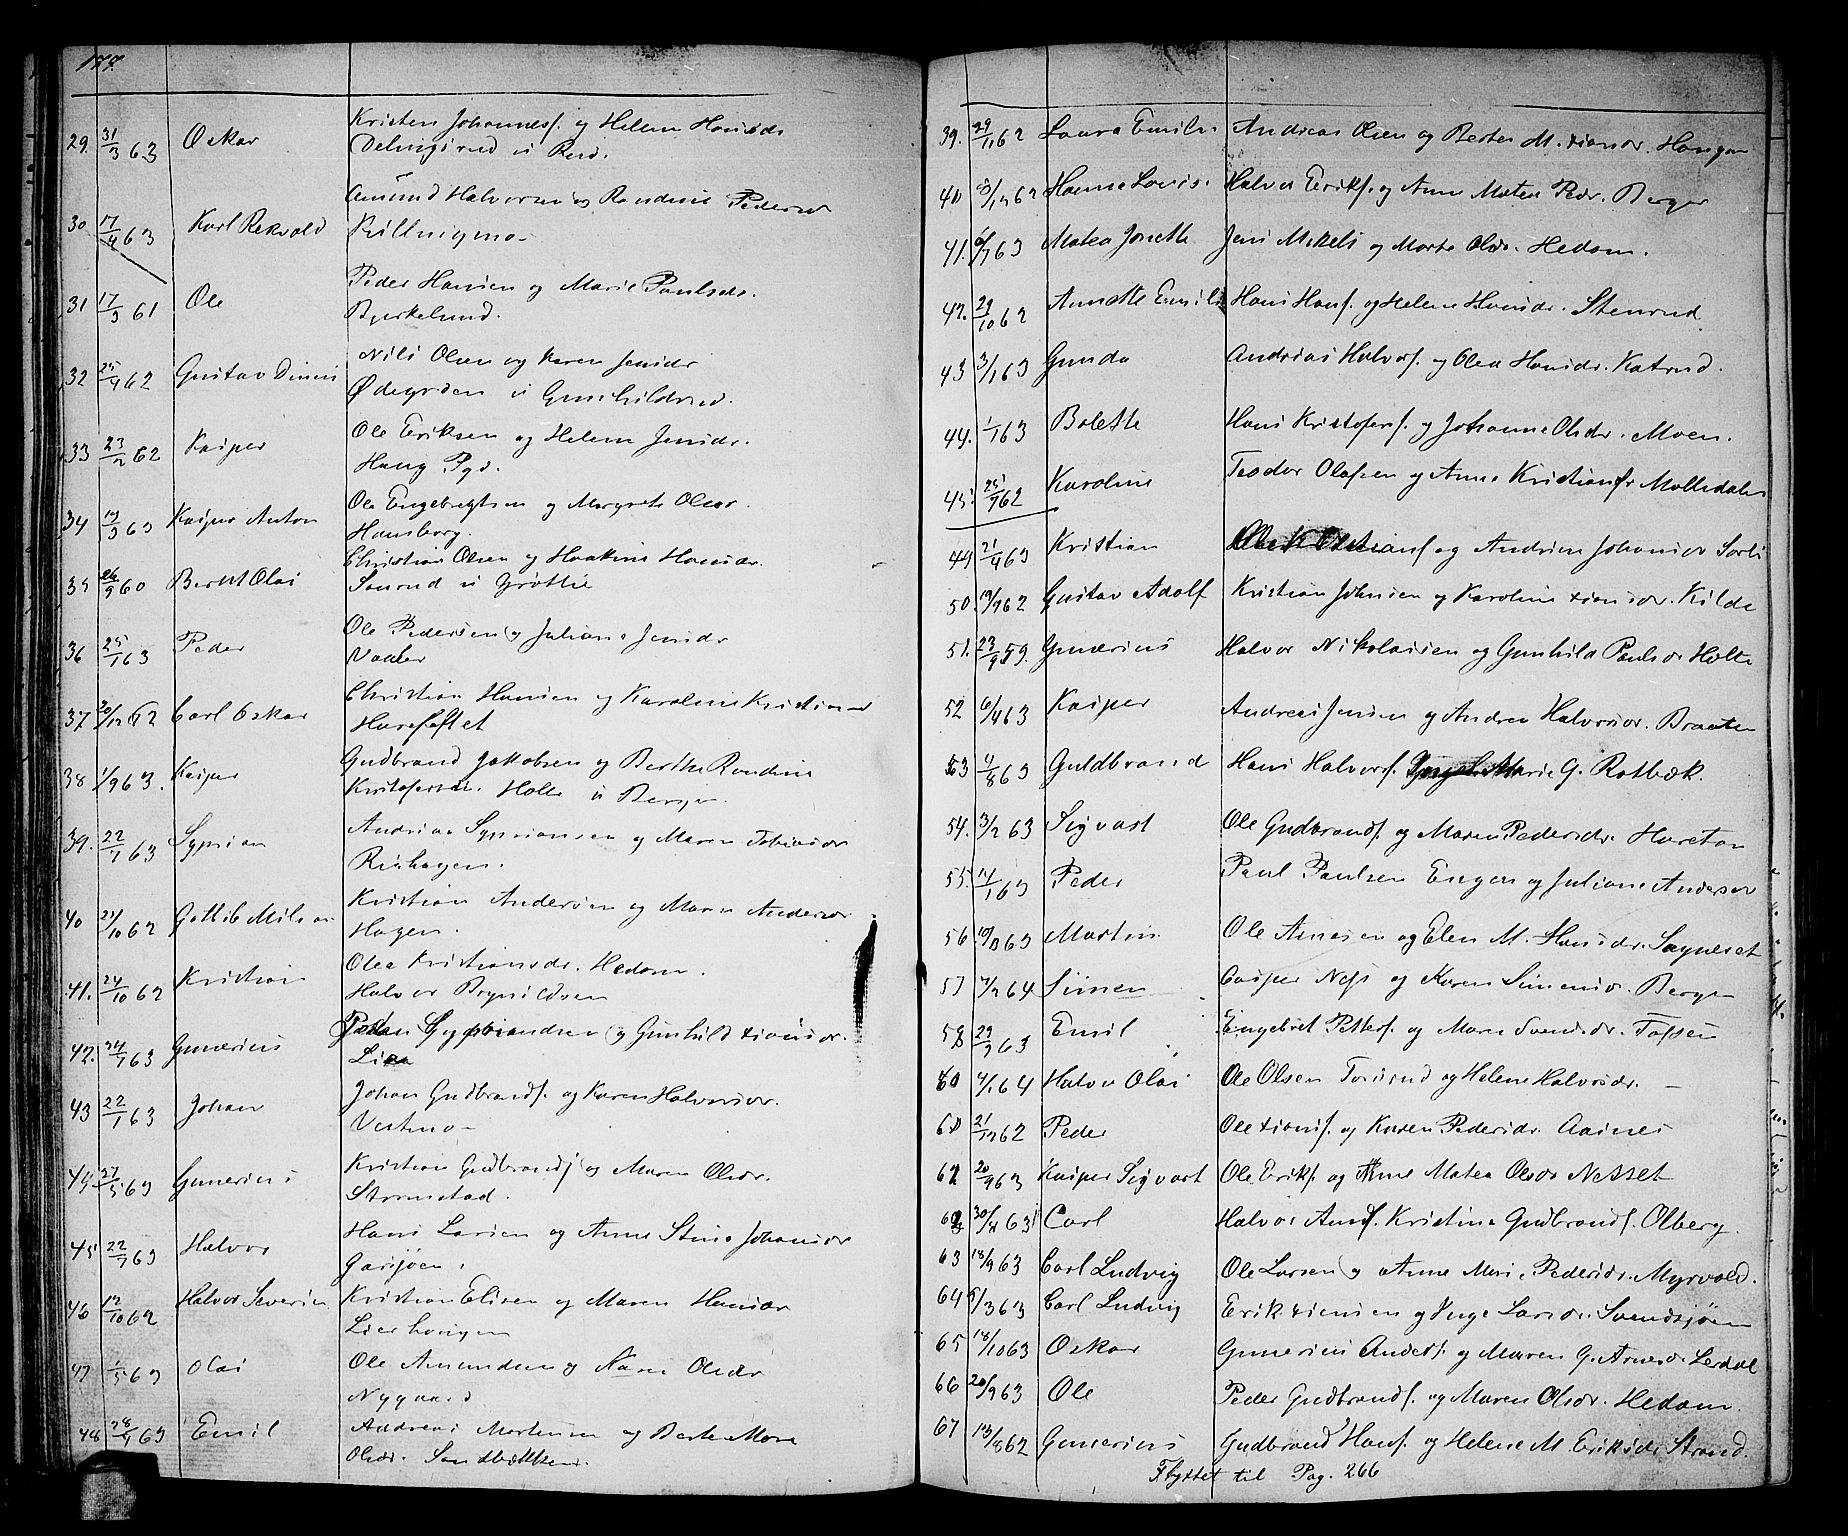 177.
29. 31/3 63 Oskar Kristen Johannesf. og Helene Hansdr
i Rud.
30 17/4 63 Karl Rekvald Amund Halvorsen og Randine Pedersdr
Killingmo
31 17/3 61 Ole Peder Hansen og Marie Paulsdr.
Bjerkelund.
32 25/4 62 Gustav Nils Olsen og Karen Jensdr
Ødegarden u Gunhildrud.
33 23/2 62 Kasper Ole Eriksen og Helene Jensdr.
Haug
34 19/3 63 Kasper Anton Ole Engebregtsen og Margrete Olsdr
Hansborg.
35 26/9 60 Berthl Olai Christian Olsen og Haakine Hansdr.
u
36 25/1 63 Peder Ole Pedersen og Juliane Jensdr
37 20/12 62 Carl Oskar Christian Hansen og Karoline Kristians
Hareføftet
38 1/9 63. Kasper Gudbrand Jakobsen og Berthe Randine
Kristofersdr. Holte u Berger.
39. 22/7 63 Syprian Andrias Sypriansen og Maren Tobiasdr
40 21/10 62 Gottlib Kristian Andersen og Maren Andersdr
Hagen.
41. 24/10 62 Kristian Olea Kristiansdr. Hedom.
Halvor Brynildsen
42. 24/7 63 Gunerius og Gunhild xiansdr.
Lien
43 22/1 63 Johan Johan Gudbrandf. og Karen Halvorsdr.
Vestmo
44. 27/5 63 Gunerius Kristian Gudbrandf og Maren Olsdr.
Strømstad.
45 22/7 63 Halvor Hans Larsen og Anne Stine Johansdr
Garsjøen.
46 12/10 62 Halvor Severin Kristian Elisen og Maren Hansdr
Lierhaugen
47 1/5 63 Olai Ole Amundsen og Karen Olsdr
Nygaard
48 28/7 63 Emil Andreas Mortensen og Berte Mare
Olsdr. Sandbækken.
39. 29/11 62 Laura Emilie Andreas Olsen og Berte M. xiansdr. Haugen
40 8/12 62 Hanna Lovis. Halvor Eriksf. og Anne Matea Pedr. Berger
41. 6/7 63 Matea Jonette Jens Mikels og Marte Olsdr. Hedom.
42. 29/10 62 Annette Emilie Hans Hansf. og Helene Hansdr. Stenrud
43 3/1 63 Gunda Andreas Halvorsf. og Olea Hansdr. Katrud.
44. 1/1 63 Bolette Hans Kristofersf. og Johanne Olsdr. Moen.
45. 25/9 62 Karoline Teodor Olafsen og Anne Kristiansf
49 21/4 63 Kristian og Andrine Johansdr Sørli
50. 19/9 62 Gustav Adolf Kristian Johnsen og Karoline xiansdr. Kilde
51. 23/9 59. Gunerius Halvor Nikolaisen og Gunhild Paulsdr Holte
52 6/4 63 Kasper Andreas Jensen og Andrea Halvorsdr. Braaten
53 4/8 63 Guldbrand Hans Halvorsf. Marie G. Rotbæk.
54. 3/2 63 Sigvart Ole Gudbrandf. og Maren Pedersdr. Hareton
55. 14/1 63 Peder Paul Paulsen Engen og Juliane Andersdr
56 19/8 63 Martin Ole Arnesen og Elen M. Hansdr. Sagneset
57 4/2 64 Simen Casper Nefs og Karen Simensdr. Berger
58 29/9 63 Emil Engebret Pettersf. og Maren Svendsdr. Tofsen
60 4/1 64 Halvor Olai Ole Olsen og Helene Halvorsdr.
60 21/12 62 Peder Ole xiansf. og Karen Pedersdr. Aasnes
62 20/9 63 Kasper Sigvart Ole Eriksf. og Anne Matea Olsdr Nesset
62 30/8 63 Carl Halvor Amf. Kristine Gudbrandf. Olberg.
63 18/9 63 Carl Ludvig Ole Larsen og Anne Mari. Pedersdr. Myrvold.
64 9/3 63 Carl Ludvig Erik xiensen og Inge Larsdr. Svendsjøen
65 18/10 63 Oskar Gunerius Andersf. og Maren G. Arnesdr Lerdal
66 20/9 63 Ole Peder Gudbrandf. og Maren Olsdr. Hedom.
67 13/8 62 Gunerius Gudbrand Hansf. og Helene M. Eriksdr Strand.
Flyttet til Pag. 266